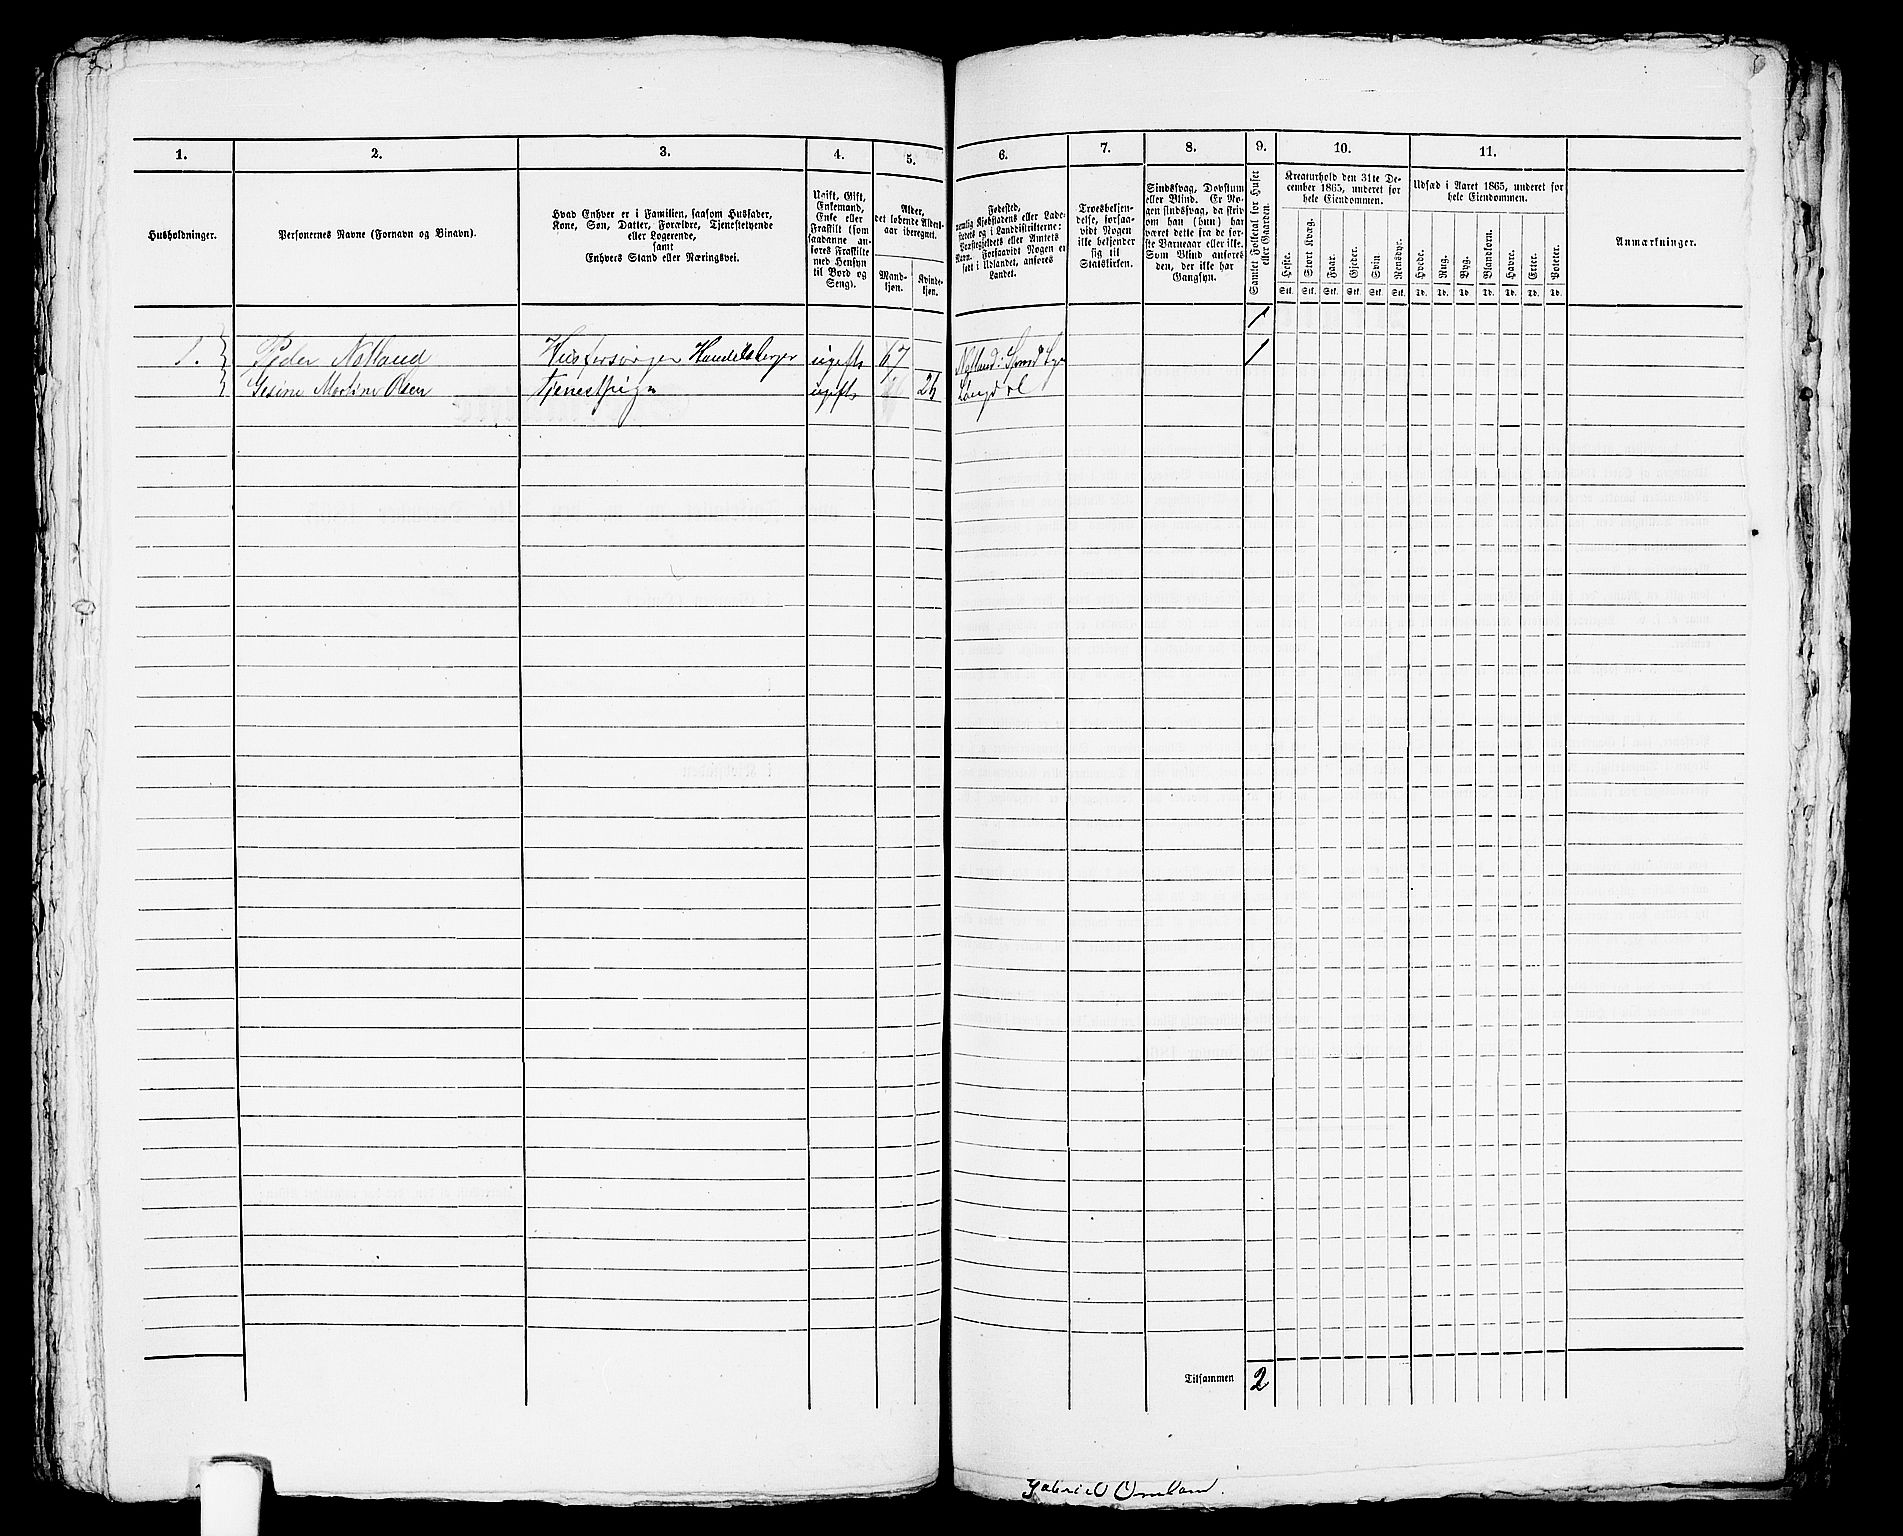 1.
2.
3.
4.
5.
6.
7.
8.
9.
10.
11.
Husholdninger.
Personernes Navne (Fornavn og Binavn).
Hvad Enhver er i Familien, saasom Husfader,
Kone, Søn, Datter, Forældre, Tjenestetyende
eller Logerende,
samt
Enhvers Stand eller Næringsvei.
Ugift, Gift,
Enkemand,
Enke eller
Fraskilt (som
saadanne an-
føres Fraskilte
med Hensyn
til Bord og
Seng).
Alder,
det løbende Alders-
aar iberegnet.
Mand-
kjøn.
Kvinde-
kjøn.
Fødested,
nemlig Kjøbstadens eller Lade-
stedets og i Landdistrikterne:
Præstegjeldets eller Amtets
Navn. Forsaavidt Nogen er
født i Udlandet, anføres
Landet.
Troesbekjen-
delse, forsaa-
vidt Nogen
ikke bekjender
sig til
Statskirken.
Sindssvag, Døvstum
eller Blind. Er No-
gen sindssvag, da skriv
om han (hun) har
været dette fra de før-
ste Barneaar eller ikke.
Som Blind anføres
den, der ikke har
Gangsyn.
Samlet Folketal for Huset
eller Gaarden.
Kreaturhold den 31te De-
cember 1865, underet for
hele Eiendommen.
Heste.
Stort Kvæg.
Faar.
Gjeder.
Svin.
Rensdyr.
Stk. Stk. Stk. Stk. Stk. Stk.
Udsæd i Aaret 1865, underet for
hele Eiendommen.
Hvede.
Rug.
Byg.
Blandkorn.
Havre.
Erter.
Poteter.
Td. Td. Td. Td. Td. Td. Td.
Anmærkninger.
1
1. Peder Nolland Husforsørger Handelsborger ugift 67 1
Gesine Martine Olsen Tjenestpige ugift 26
Tilsammen 2
Gabriel